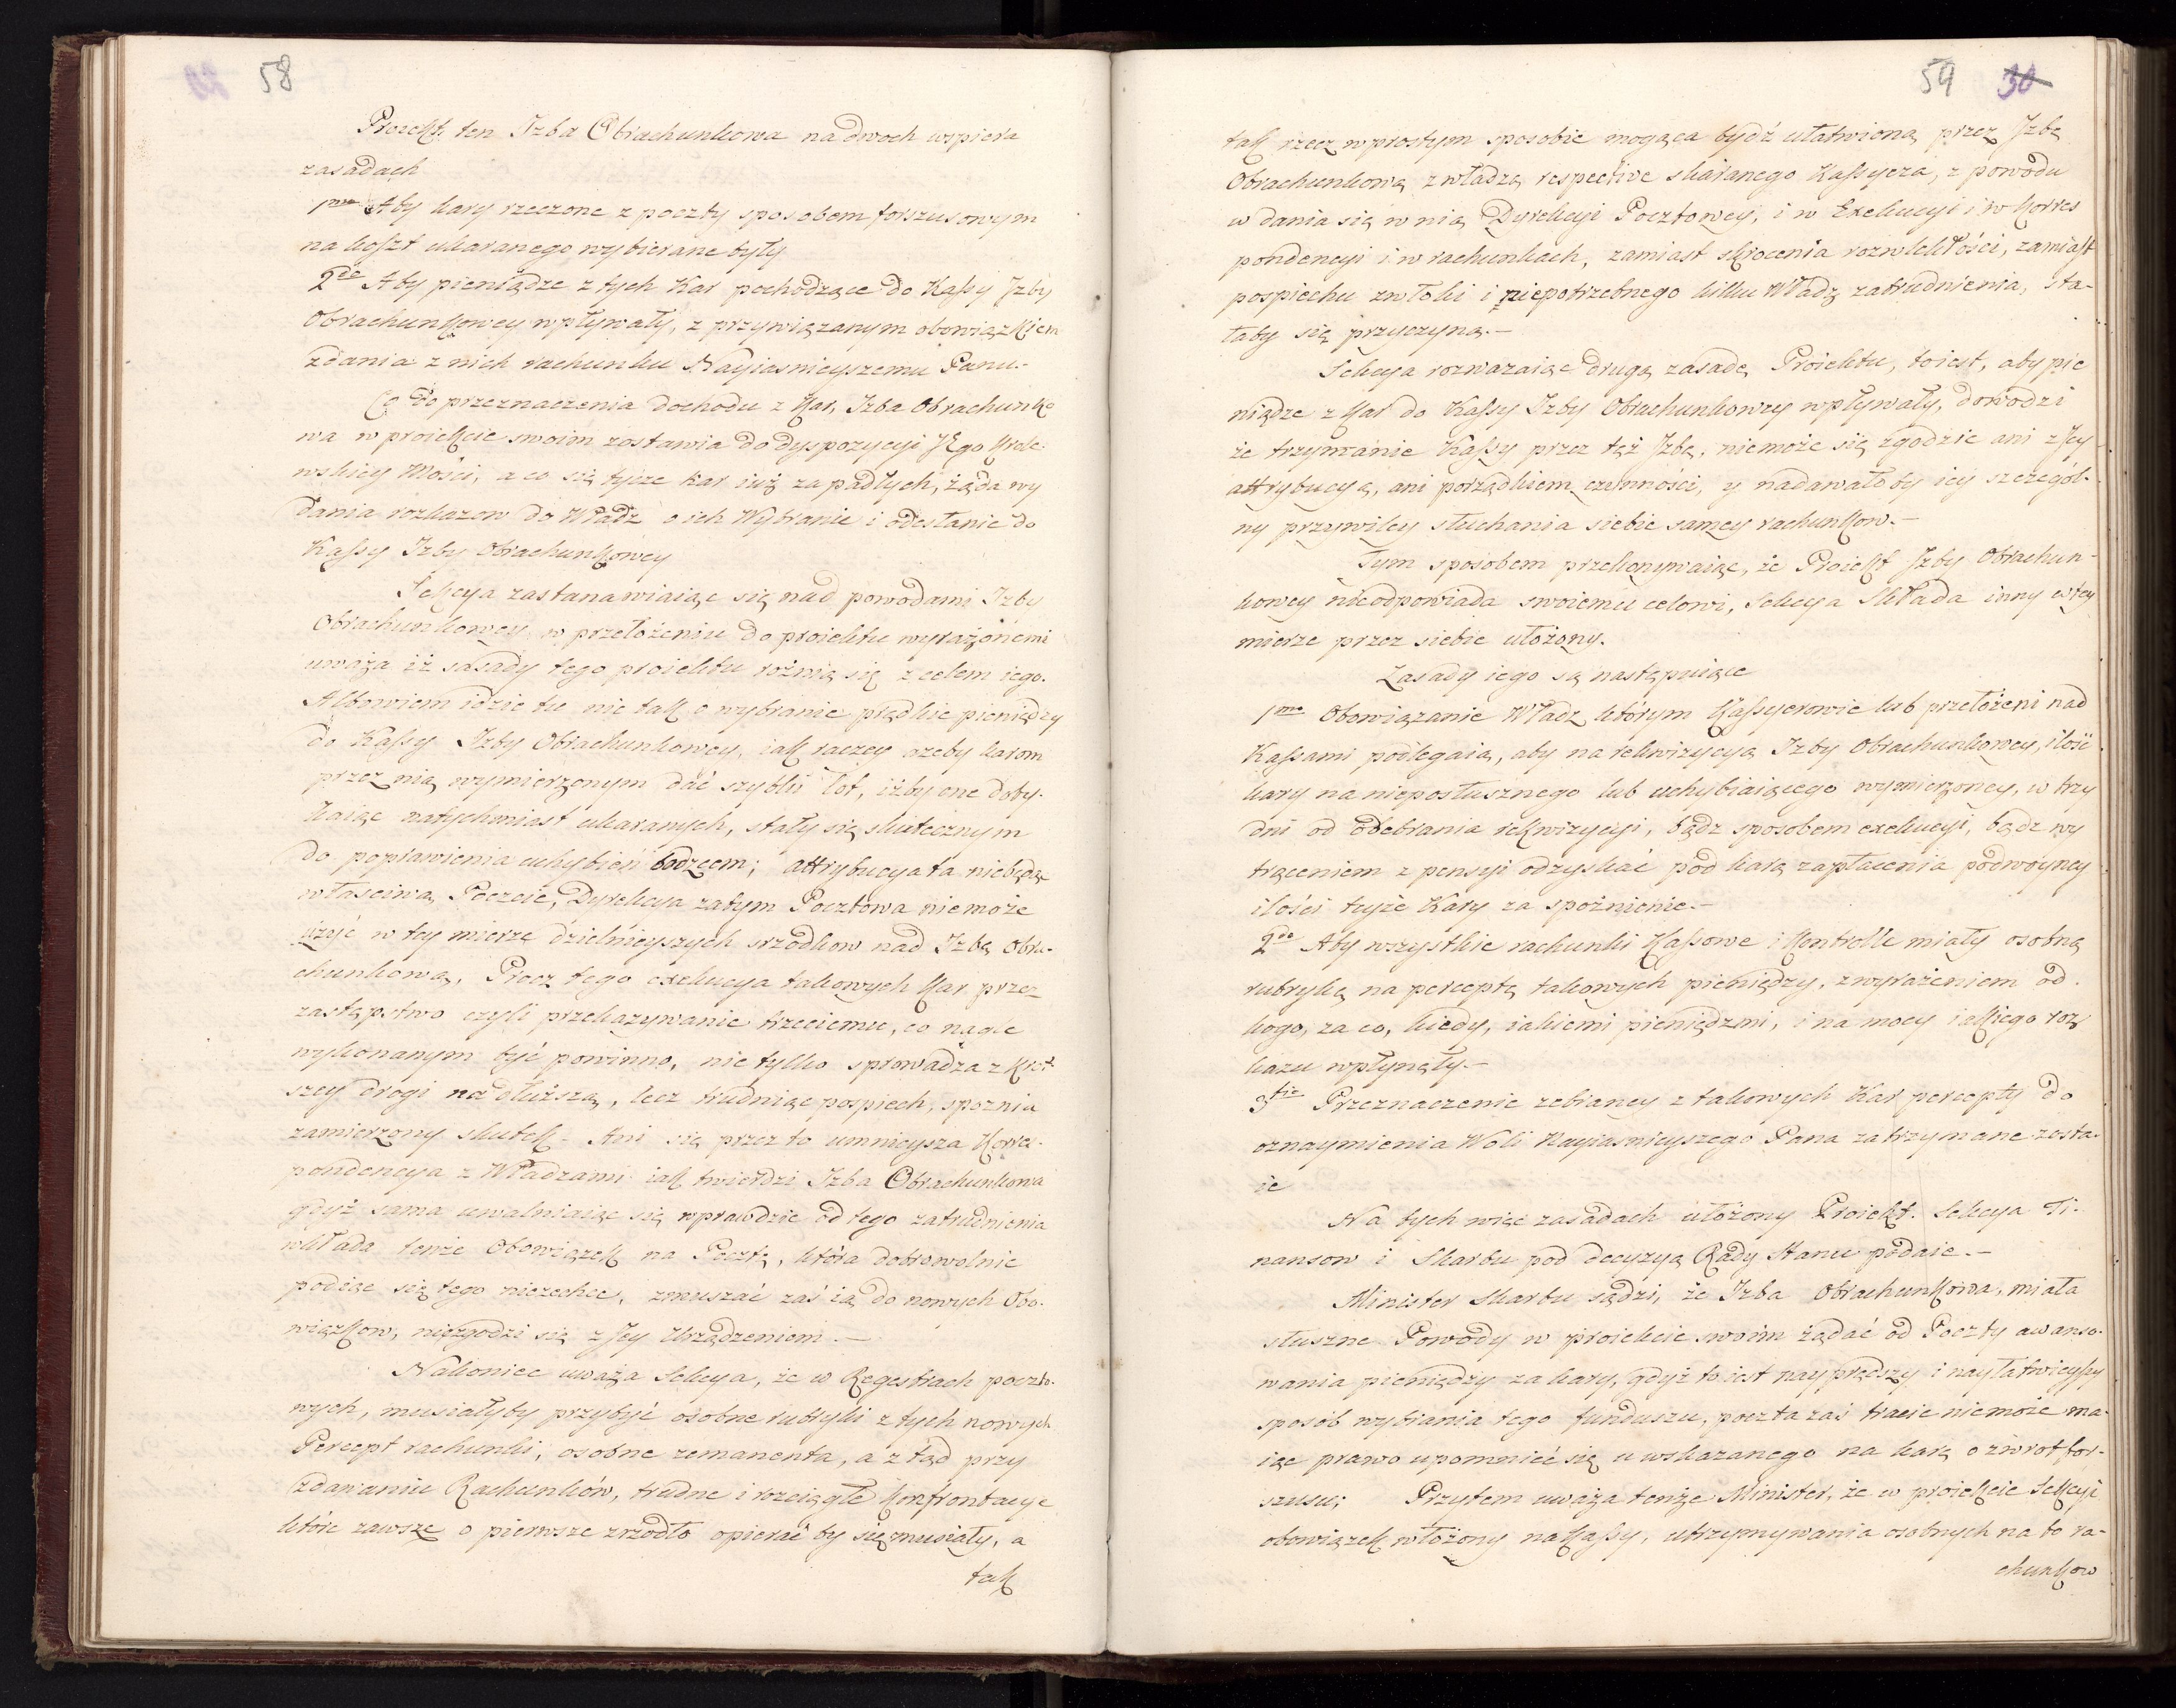 58
Proiekt ten Izba Obrachunkowa na dwoch wspiera
zasadach
1mo Aby kary rzeczone z poczty sposobem forszusowym
na koszt ukaranego wybierane były
2do Aby pieniądze z tych Kar pochodzące do Kassy Izby
Obrachunkowey wpływały, z przywiązanym obowiązkiem
zdania z nich rachunku Nayiasnieyszemu Panu.-
Co do przeznaczenia dochodu z Kar, Izba Obrachunko
wa w proiekcie swoim zostawia do dyspozycyi JEgo Krole-
wskiey Mości, a co się tycze kar iuż zapadłych, żąda wy
dania rozkazow do Władz o ich Wybranie i odesłanie do
Kassy Izby Obrachunkowey
Sekcya zastanawiaiąc się nad powodami Izby
Obrachunkowey w przełożeniu do proiektu wyrażonemi
uważa iż zasady tego proiektu rożnią się z celem iego.
Albowiem idzie tu nie tak o wybranie prędkie pieniędzy
do Kassy Izby Obrachunkowey, iak raczey ażeby karom
przez nią wymierzonym dać szybki lot, iżby one doty-
kaiąc natychmiast ukaranych, stały się skutecznym
do poprawienia uchybień bodzcem; attrybucya ta niebędąc
właściwą Poczcie, Dyrekcya zatym Pocztowa niemoże
użyć w tey mierze dzielnieyszych srzodkow nad Izbę Obra-
chunkową, Procz tego exekucya takowych Kar przez
zastępstwo czyli przekazywanie trzeciemu, co nagle
wykonanym być powinno, nie tylko sprowadza z krot
szey drogi na dłuższą, lecz trudniąc pospiech, spoznia
zamierzony skutek. Ani się przez to umnieysza Korres-
pondencya z Władzami iak twierdzi Izba Obrachunkowa
gdyż sama uwalniaiąc się wprawdzie od tego zatrudnienia
wkłada tenże Obowiązek na Pocztę, która dobrowolnie
podiąc się tego niezechce, zmuszać zaś ią do nowych Obo-
wiązkow, niezgodzi się z Jey Urządzeniem.—
Nakoniec uważa Sekcya, że w Regestrach poczto-
wych, musiałyby przybyć osobne rubryki z tych nowych
Percept rachunki, osobne remanenta, a z tąd przy
zdawaniu Rachunków, trudne i rozciągłe Konfrontacye
które zawsze o pierwsze zrzodło opierać by się musiały, a
tak
59 30
tak rzecz w prostym sposobie mogąca bydź ułatwioną przez Izbę
Obrachunkową z władzą respective skaranego Kassyera, z powodu
w dania się w nią Dyrekcyi Pocztowey, i w Exekucyi i w Korres
pondencyi i w rachunkach, zamiast skrocenia rozwlekłości, zamiast
pospiechu zwłoki i niepotrzebnego kilku Władz zatrudnienia, sta-
łaby się przyczyną.—
Sekcya rozważaiąc drugą zasadę Proiektu, toiest, aby pie
niądze z Kar do Kassy Izby Obrachunkowey wpływały, dowodzi
że trzymanie Kassy przez tęż Izbę, niemoże się zgodzić ani z Jey
attrybucyą, ani porządkiem czynności, y nadawałoby iey szczegól-
ny przywiley słuchania siebie samey rachunkow.—
Tym sposobem przekonywaiąc, że Proiekt Izby Obrachun-
kowey nieodpowiada swoiemu celowi, Sekcya składa inny w tey
mierze przez siebie ułożony.
Zasady iego są następuiące
1mo Obowiązanie Władz którym Kassyerowie lub przełożeni nad
Kassami podlegaią, aby na rekwizycyą Izby Obrachunkowey, ilość
kary na nieposłusznego lub uchybiaiącego wymierzoney, w trzy
dni od odebrania rekwizycyi, bądz sposobem exekucyi, bądz wy
trąceniem z pensyi odzyskać pod karą zapłacenia podwoyney
ilości teyże Kary za spoznienie.—
2do Aby wszystkie rachunki Kassowe i Kontrolle miały osobną
rubrykę na perceptę takowych pieniędzy, z wyrażeniem od
kogo, za co, kiedy, iakiemi pieniędzmi, i na mocy iakiego roz
kazu wpłynęły.—
3tio Przeznaczenie zebraney z takowych Kar percepty do
oznaymienia Woli Nayiasnieyszego Pana zatrzymane zosta-
ie
Na tych więc zasadach ułożony Proiekt Sekcya Fi-
nansow i Skarbu pod decyzyą Rady Stanu podaie.—
Minister Skarbu sądzi, że Izba Obrachunkowa, miała
słuszne Powody w proiekcie swoim żądać od Poczty awanso-
wania pieniędzy za kary, gdyż to iest nayprędszy i nayłatwieyszy
sposób wybrania tego funduszu, poczta zaś tracić niemoże ma-
iąc prawo upomnieć się u wskazanego na karę o zwrot for-
szusu; Przytem uważa tenże Minister, że w proiekcie Sekcyi
obowiązek włożony na Kassy, utrzymywania osobnych na to ra-
chunkow